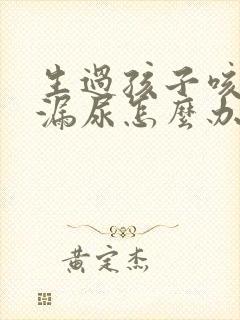 生過孩子咳
漏尿怎麼办
黄定杰